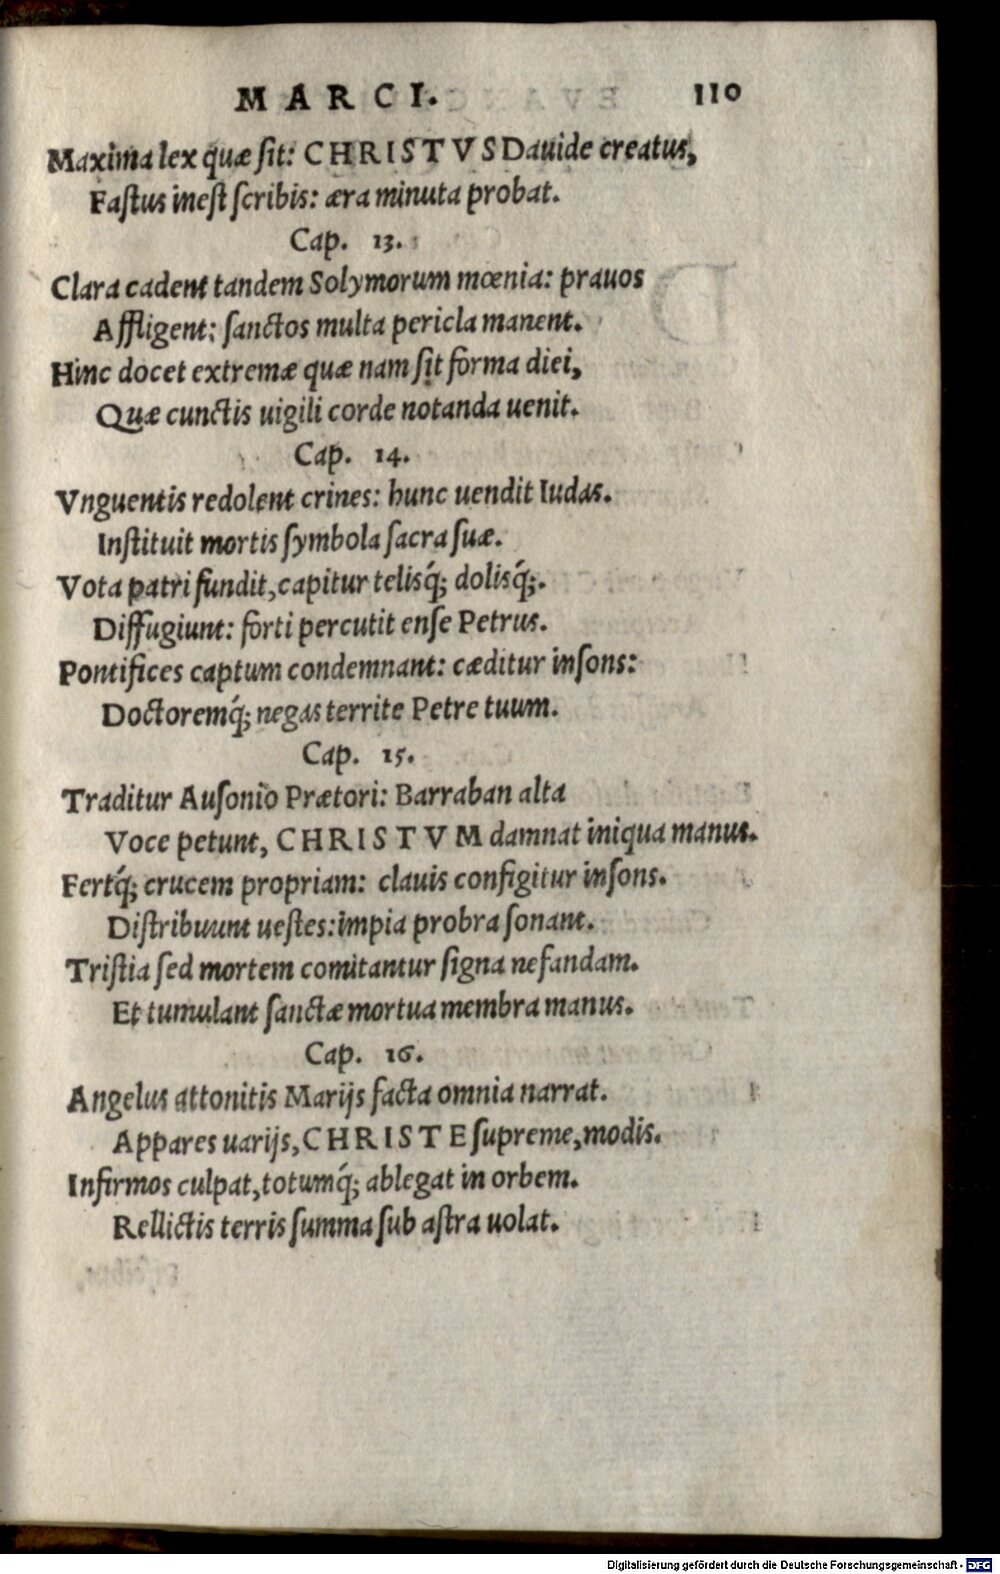 MARCI. 110
Maxima lex quæ ſit: CHRISTVS Dauide creatus,
Faſtus ineſt ſcribis: æra minuta probat.
Cap. 13.
Clara cadent tandem Solymorum mœnia: prauos
Affligent: ſanctos multa pericla manent.
Hinc docet extremæ quæ nam ſit forma diei,
Quæ cunctis uigili corde notanda uenit.
Cap. 14.
Vnguentis redolent crines: hunc uendit Iudas.
Inſtituit mortis ſymbola ſacra ſuæ.
Vota patri fundit, capitur telisq́; dolisq́;.
Diffugiunt: forti percutit enſe Petrus.
Pontifices captum condemnant: cæditur inſons:
Doctoremq́; negas territe Petre tuum.
Cap. 15.
Traditur Auſonio Prætori: Barraban alta
Voce petunt, CHRISTVM damnat iniqua manus.
Fertq́; crucem propriam: clauis configitur inſons.
Diſtribuunt ueſtes: impia probra ſonant.
Triſtia ſed mortem comitantur ſigna nefandam.
Et tumulant ſanctæ mortua membra manus.
Cap. 16.
Angelus attonitis Marijs facta omnia narrat.
Appares uarijs, CHRISTE ſupreme, modis.
Infirmos culpat, totumq́; ablegat in orbem.
Rellictis terris ſumma ſub aſtra uolat.
Digitalisierung gefördert durch die Deutsche Forschungsgemeinschaft - DFG